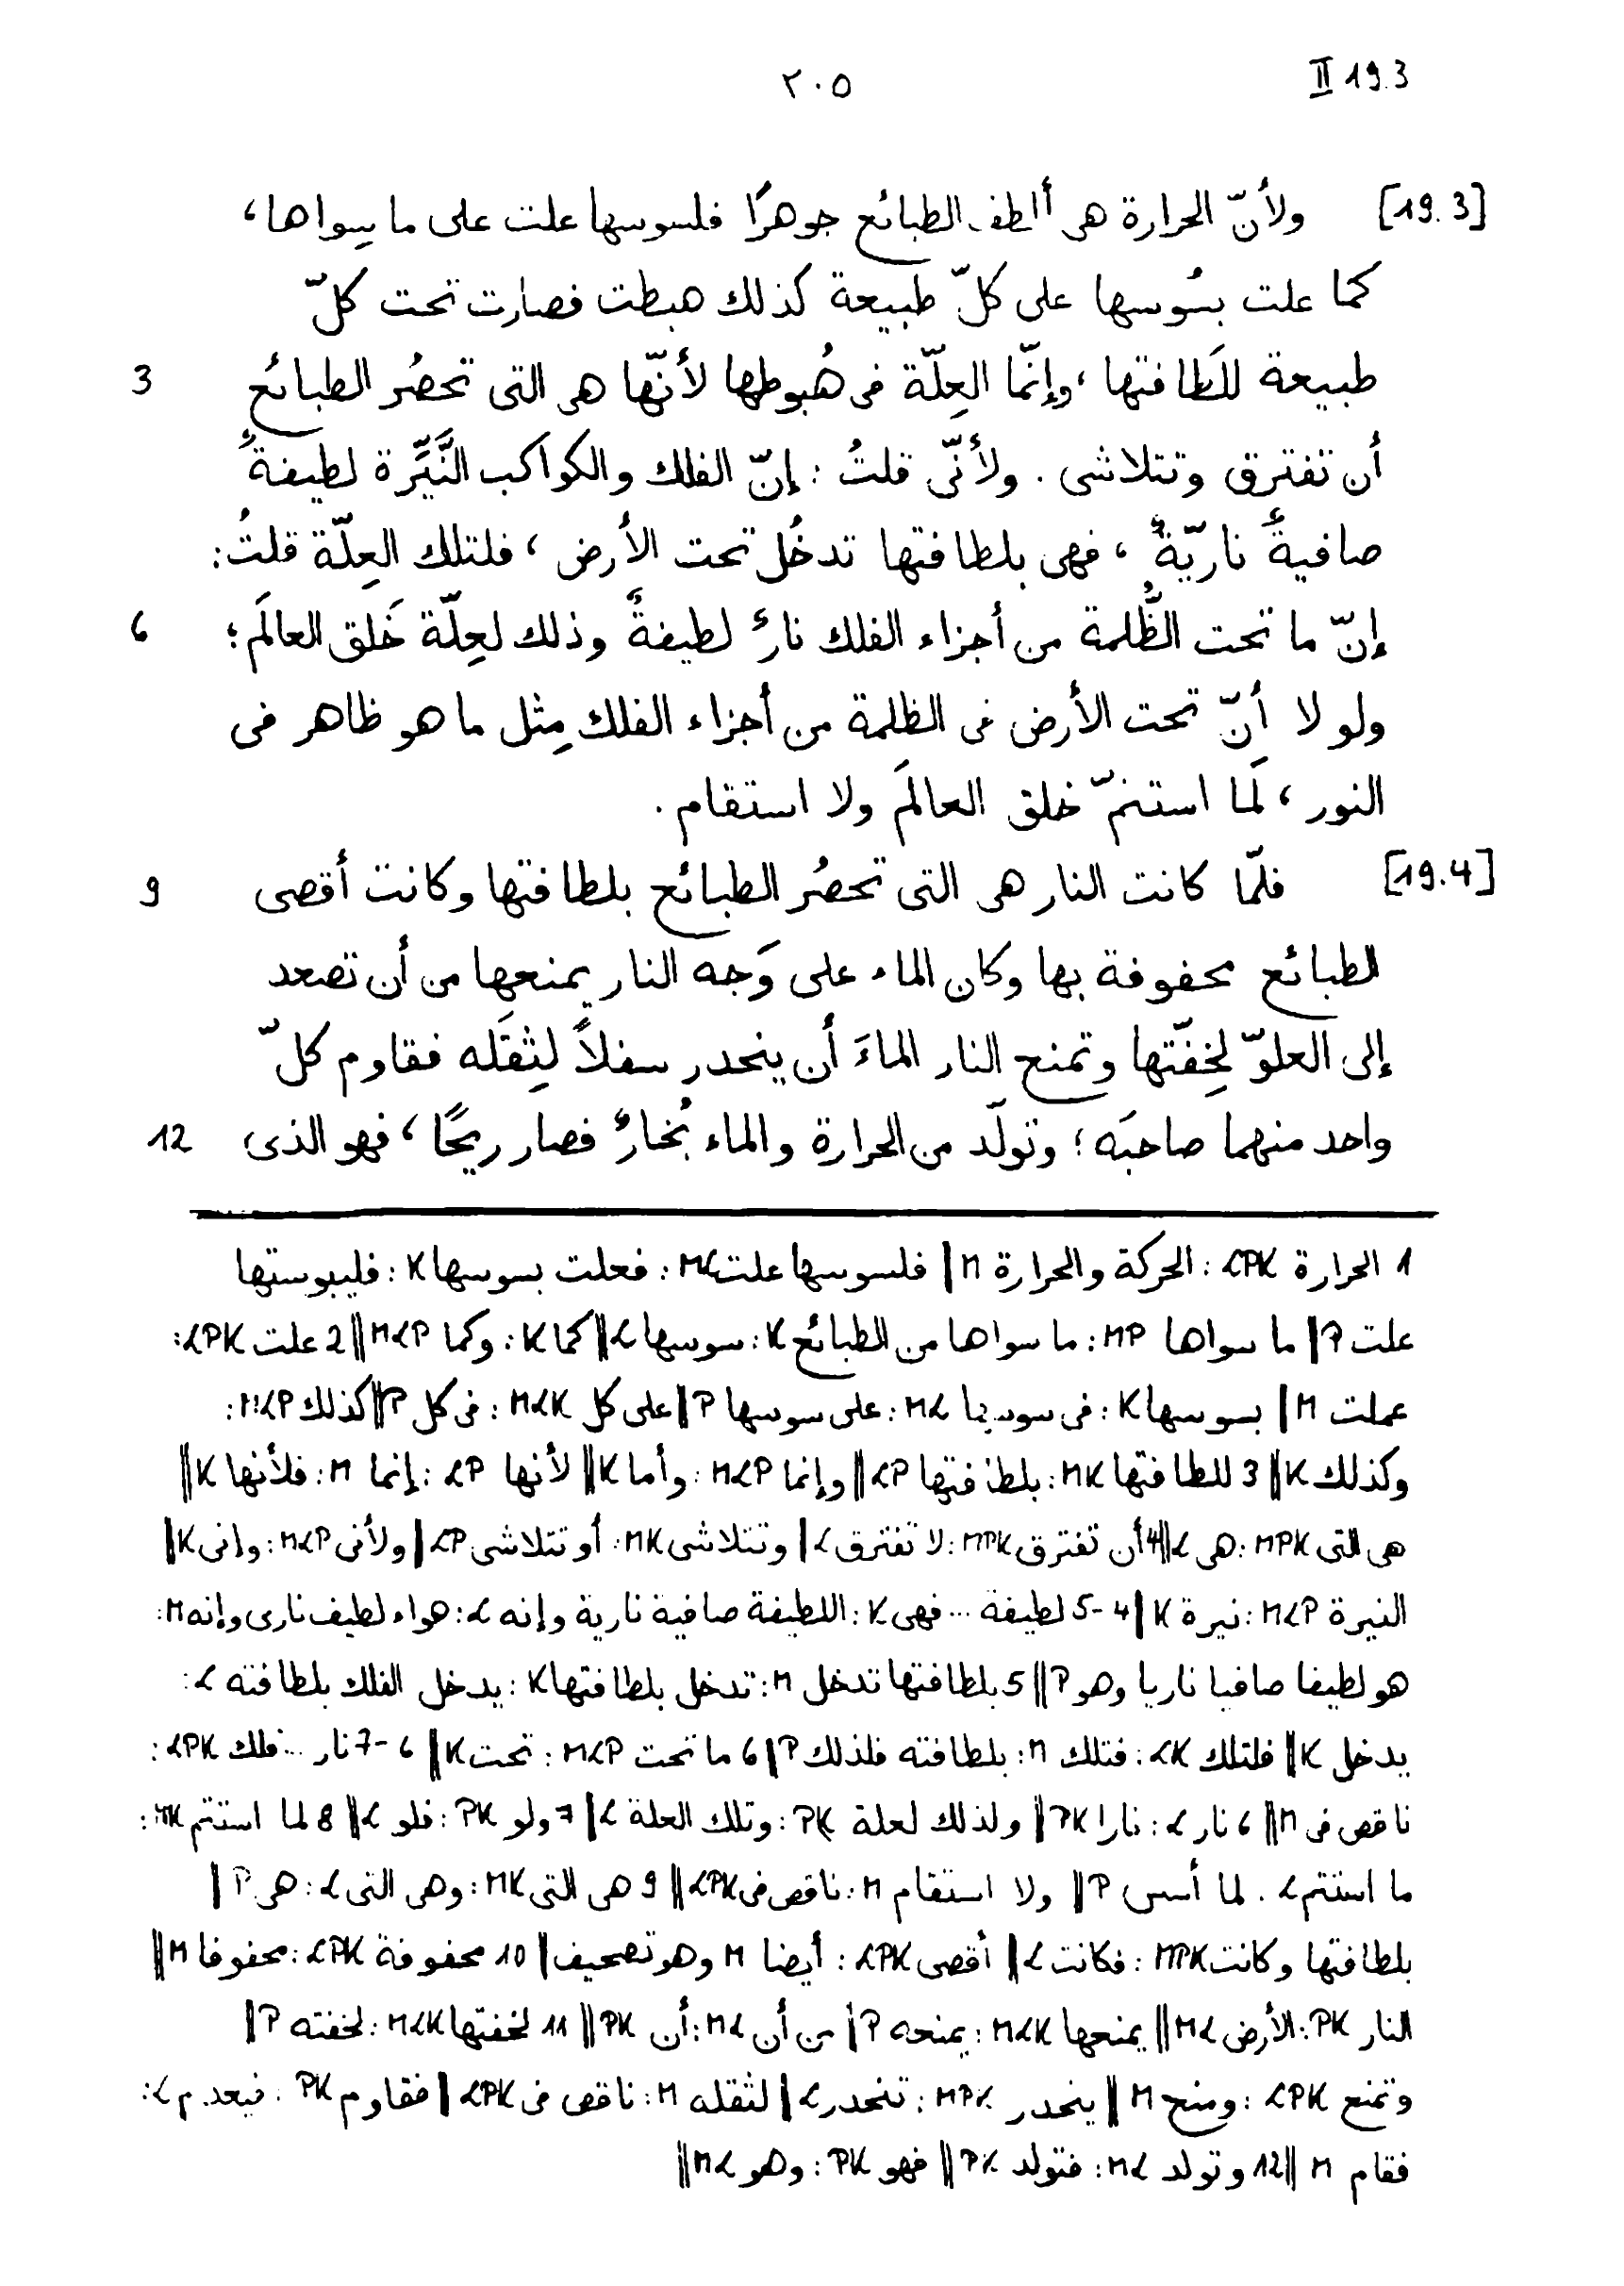 ٢٠٥ II 19.3
[19.3] ولأنّ الحرارة هى ألطف الطبائع جوهرًا فلسوسها علت على ما سِواها،
كما علت بسُوسها على كلّ طبيعة كذلك هبطت فصارت تحت كلّ
3 طبيعة للَطافتها، وإنّما العِلّة فى هُبوطها لأنّها هى التى تحصُر الطبائع
أن تفترق وتتلاشى. ولأنّى قلتُ: إنّ الفلك والكواكب النَّيِّرة لطيفةٌ
صافيةٌ ناريّةٌ، فهى بلطافتها تدخُل تحت الأرض، فلتلك العِلّة قلتُ:
6 إنّ ما تحت الظُّلمة من أجزاء الفلك نارٌ لطيفةٌ وذلك لعِلّة خَلق العالَم؛
ولو لا أنّ تحت الأرض فى الظلمة من أجزاء الفلك مِثل ما هو ظاهر فى
النور، لَما استتمّ خلق العالَم ولا استقام.
[19.4] فلمّا كانت النار هى التى تحصُر الطبائع بلطافتها وكانت أقصى
9
الطبائع محفوفة بها وكان الماء على وَجه النار يمنعها من أن تصعد
إلى العلوّ لخِفّتها وتمنع النار الماءَ أن ينحدر سفلاً لثِقَله فقاوم كلّ
12 واحد منهما صاحبَه؛ وتولّد من الحرارة والماء بُخارٌ فصار ريحًا، فهو الذى
1 الحرارة LPK: الحركة والحرارة M | فلسوسها علت ML: فعلت بسوسها K: فليبوستها
علت P | ما سواها MP: ما سواها من الطبائع K: سوسها L || كما K: وكما MLP || 2 علت LPK:
عملت M | بسوسها K: فى سوسها ML: على سوسها P | على كل MLK: فى كل P || كذلك MLP:
وكذلك K || 3 للطافتها MK: بلطافتها LP || وإنما MLP: وأما K || لأنها LP: إنما M: فلأنها K ||
هى التى MPK: هى L || 4 أن تفترق MPK: لا تفترق L | وتتلاشى MK: أو تتلاشى LP | ولأنى MLP: وإنى K |
النيرة MLP: نيرة K | 4-5 لطيفة ... فهى K: اللطيفة صافية نارية وإنه L: هواء لطيف نارى وإنه M:
هو لطيفا صافيا ناريا وهو P || 5 بلطافتها تدخل M: تدخل بلطافتها K: يدخل الفلك بلطافته L:
يدخل K || فلتلك LK: فتلك M: بلطافته فلذلك P | 6 ما تحت MLP: تحت K || 6-7 نار ... فلك LPK:
ناقص فى M || 6 نار L: نارا PK || ولذلك لعلة PK: وتلك العلة L | 7 ولو PK: فلو L || 8 لما استتم MK:
ما استتم L. لما أسس P || ولا استقام M: ناقص فى LPK || 9 هى التى MK: وهى التى L: هى P |
بلطافتها وكانت MPK: فكانت L || أقصى LPK: أيضا M وهو تصحيف | 10 محفوفة LPK: محفوفا M ||
النار PK: الأرض ML || يمنعها MLK: يمنحه P | من أن ML: أن PK || 11 لخفتها MLK: لخفته P |
وتمنع LPK: ومنح M || ينحدر MPK: تنحدر L | لثقله M: ناقص فى LPK | فقاوم PK: L:
فقام M || 12 وتولد ML: فتولد PK || فهو PK: وهو ML ||